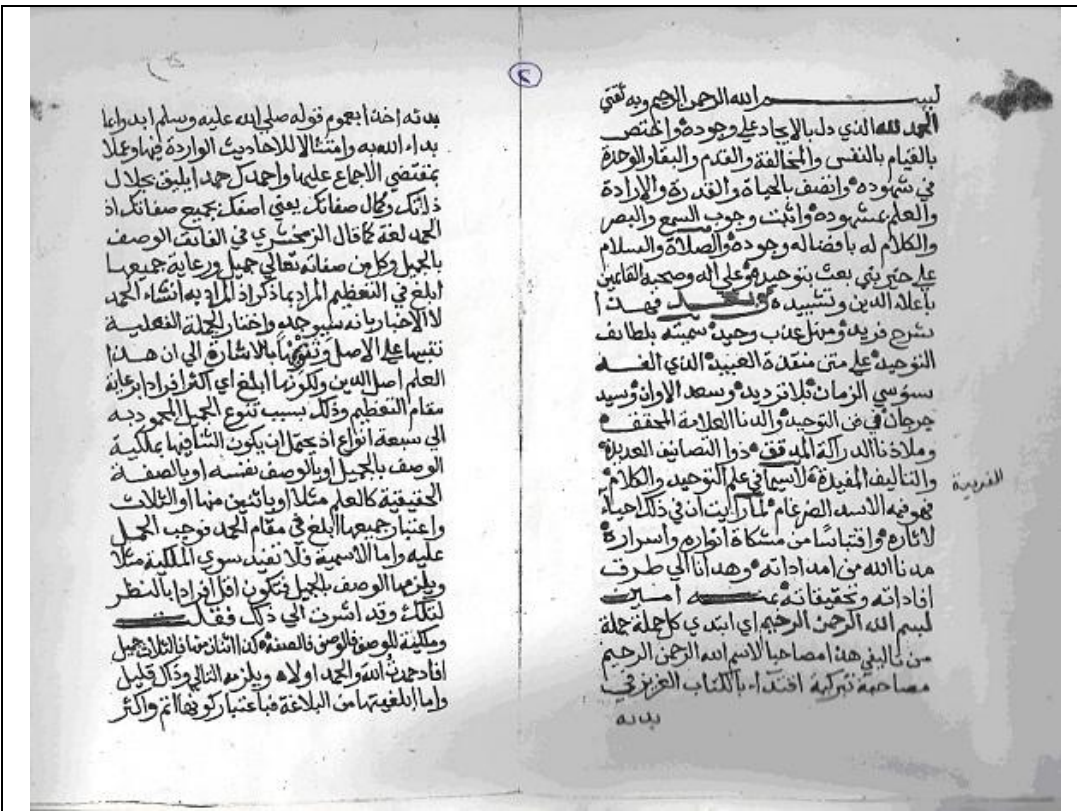 بسم الله الرحمن الرحيم وبه ثقتي
الحمد لله الذي دل بالايجاد على وجوده والمختص
بالقيام بالنفس والمخالفة والقدم والبقا والوحدة
في شهوده واتصف بالحياة والقدرة والارادة
والعلم بمشهوده واثبت وجوب السمع والبصر
والكلام له بافضاله وجوده والصلاة والسلام
على خير نبي بعث بتوحيده وعلى اله وصحبه القائمين
باعلاء الدين وتشييده وبعد فهذا
شرح فريد ومنهل عذب وحيد سميته بلطائف
التوحيد على متن منقذة العبيد الذي الفه
سنوسي الزمان بلا ترديد وسعد الاوان وسيد
جرجان في فن التوحيد والدنا العلامة المحقق
وملاذنا الدراكة المدقق ذوا التصانيف العديدة
والتاليف المفيدة لاسيما في علم التوحيد والكلام
الفريدة
فهو فيه الاسد الضرغام لما رايت ان في ذلك احياء
لاثاره واقتباسا من مشكاة انواره واسراره
مدنا الله من امداداته وهدانا الي طرف
افاداته وتحقيقاته بمنه امين
بسم الله الرحمن الرحيم اي ابتدي كل جملة جملة
من تاليفي هذا مصاحبا لاسم الله الرحمن الرحيم
مصاحبة تبركية اقتداء بالكتاب العزيز في
بدئه
٢
بدئه اخذا بعموم قوله صلي الله عليه وسلم ابدوا بما
بداء الله به وامتثالا للاحاديث الواردة فيها وعملا
بمقتضي الاجماع عليها واحمدك حمدا يليق بجلال
ذاتك وكمال صفاتك يعني اصفك بجميع صفاتك اذ
الحمد لغة كما قال الزمخشري في الفائق الوصف
بالجميل وكل من صفاته تعالي جميل ورعاية جميعها
ابلغ في التعظيم المراد بما ذكر اذ المراد به انشاء الحمد
لا الاخبار بانه سيوجد واختار الجملة الفعلية
تنبيها على الاصل وتنويها بالاشارة الي ان هذا
العلم اصل الدين ولكونها ابلغ اي اكثر افرادا برعاية
مقام التعظيم وذلك بسبب تنوع الجميل المحمود به
الي سبعة انواع اذ يحتمل ان يكون الثنا فيها بملكية
الوصف بالجميل او بالوصف نفسه او بالصفة
الحقيقية كالعلم مثلا او باثنين منها او الثلاث
واعتبار جميعها ابلغ في مقام الحمد فوجب الحمل
عليه واما الاسمية فلا تفيد سوي الملكية مثلا
ويلزمها الوصف بالجميل فتكون اقل افرادا بالنظر
لتلك وقد اشرت الي ذلك فقلت
وملكية للوصف فالوصف فالصفه كذا اثنان منها فالثلاث جميل
افاد حمدت الله والحمد اولاه ويلزمه التالي وذاك قليل
واما ابلغيتها من البلاغة فباعتبار كونها اتم واكثر